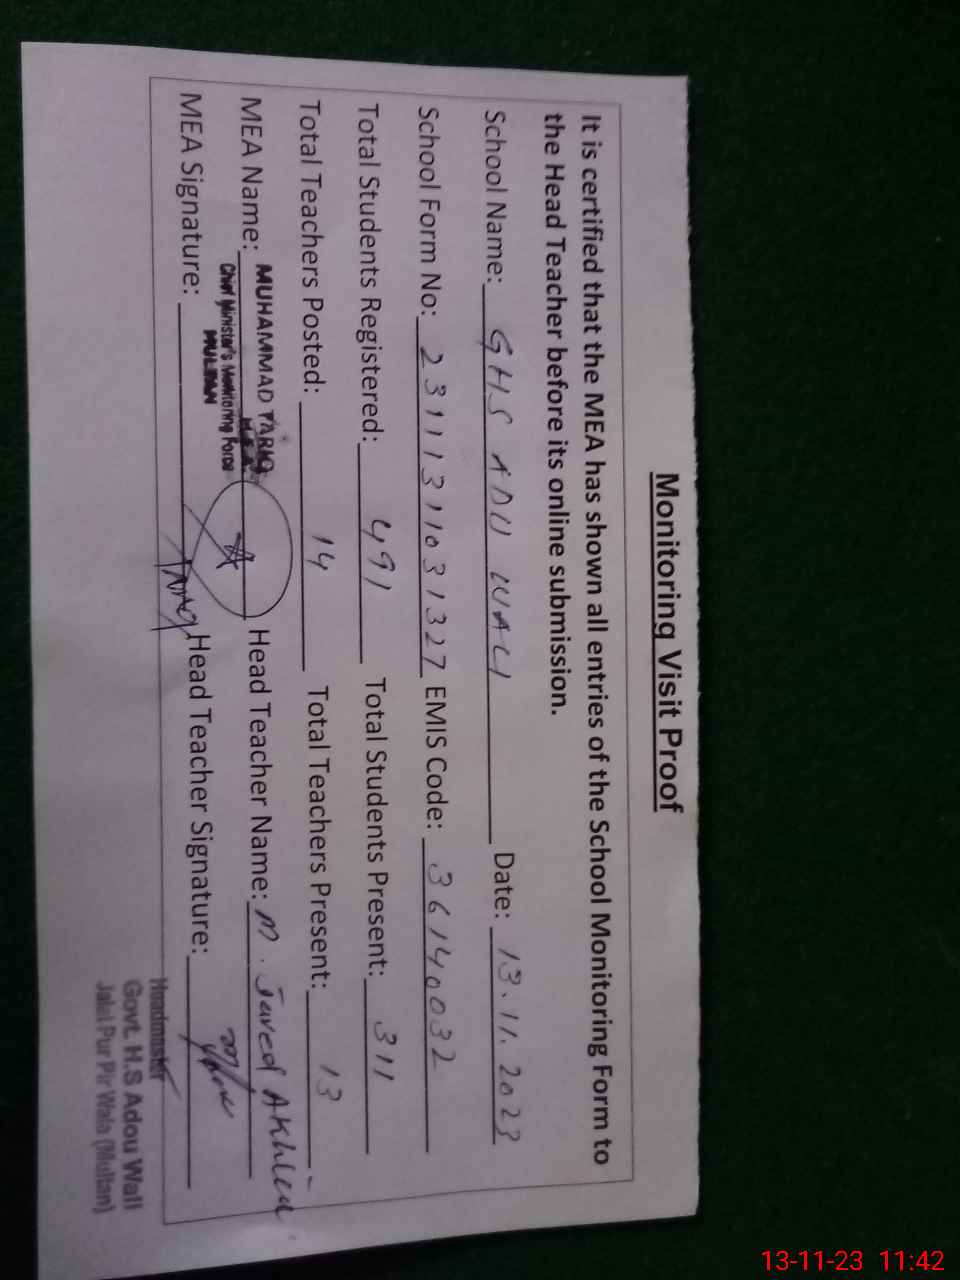 Monitoring Visit Proof
It is certified that the MEA has shown all entries of the School Monitoring Form to
the Head Teacher before its online submission.
School Name: GHS ADU WALI Date: 13.11.2023
School Form No: 23111311031327 EMIS Code: 36140032
Total Students Registered: 491 Total Students Present: 311
Total Teachers Posted: 14 Total Teachers Present: 13
MEA Name: MUHAMMAD TARIQ Head Teacher Name: M. Javed Akhter
M.E.A
Chief Minister's Monitoring Force
MULTAN
MEA Signature: Head Teacher Signature:
Headmaster
Govt. H.S Adou Wali
Jalal Pur Pir Wala (Multan)
13-11-23 11:42